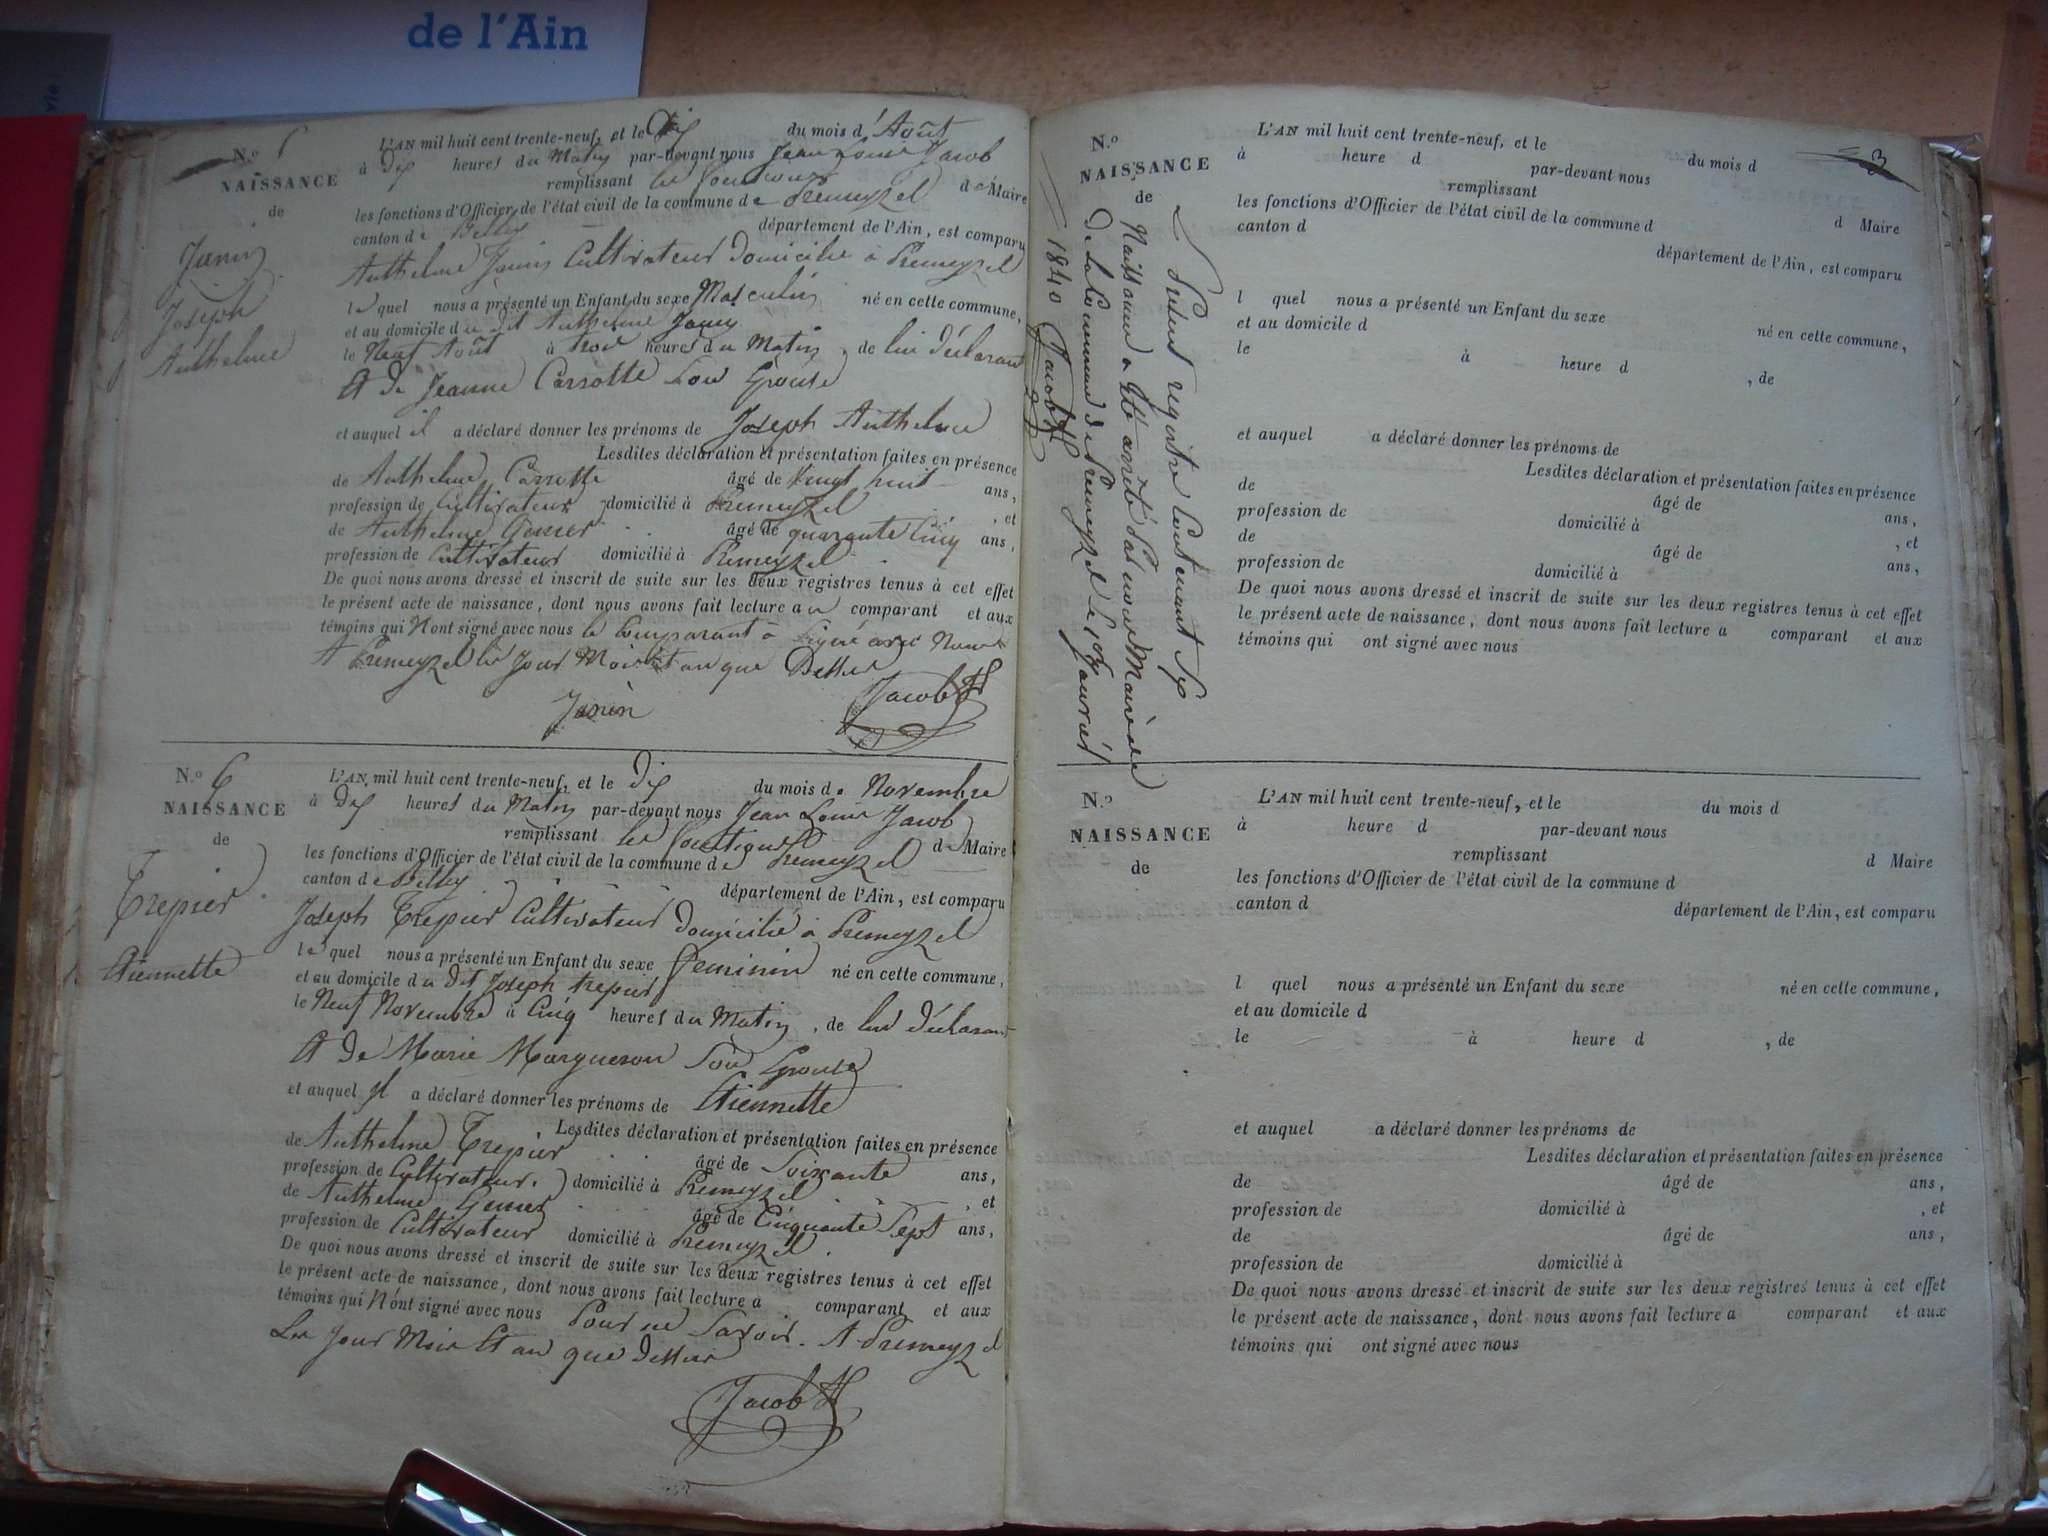 de l'Ain
vie
N.o 5
NAISSANCE
de
Janin
Joseph
Anthelme
L'AN mil huit cent trente-neuf, et le Dix du mois d'Août
à Dix heures du Matin par-devant nous Jean Louis Jacob
remplissant les fonctions de Maire
les fonctions d'Officier de l'état civil de la commune de Premeyzel
canton de Belley département de l'Ain, est comparu
Anthelme Janin Cultivateur Domicilié à Premeyzel
lequel nous a présenté un Enfant du sexe Masculin né en cette commune,
et au domicile du dit Anthelme Janin
le Neuf Août à trois heures du Matin, de lui déclarant
Et de Jeanne Carrotte Son Epouse
et auquel il a déclaré donner les prénoms de Joseph Anthelme
Lesdites déclaration et présentation faites en présence
de Anthelme Carrotte âgé de Vingt huit ans,
profession de Cultivateur domicilié à Premeyzel, et
de Anthelme âgé de quarante Cinq ans,
profession de Cultivateur domicilié à Premeyzel
De quoi nous avons dressé et inscrit de suite sur les deux registres tenus à cet effet
le présent acte de naissance, dont nous avons fait lecture au comparant et aux
témoins qui N'ont signé avec nous le Comparant à Signé avec Nous
A Premeyzel les Jour Mois Et an que Dessus
Janin Jacob
N.o 6
NAISSANCE
de
Trepier
Etiennette
L'AN mil huit cent trente-neuf, et le Dix du mois de Novembre
à Dix heures du Matin par-devant nous Jean Louis Jacob
remplissant les de Maire
les fonctions d'Officier de l'état civil de la commune de Premeyzel
canton de Belley département de l'Ain, est comparu
Joseph Trepier Cultivateur Domicilié à Premeyzel
lequel nous a présenté un Enfant du sexe Feminin né en cette commune,
et au domicile du Dit Joseph trepier
le Neuf Novembre à Cinq heures du Matin, de lui déclarant
Et de Marie Margueron Son Epouse
et auquel Il a déclaré donner les prénoms de Etiennette
Lesdites déclaration et présentation faites en présence
de Anthelme Trepier âgé de Soixante ans,
profession de Cultivateur domicilié à Premeyzel, et
de Anthelme âgé de Cinquante Sept ans,
profession de Cultivateur domicilié à Premeyzel
De quoi nous avons dressé et inscrit de suite sur les deux registres tenus à cet effet
le présent acte de naissance, dont nous avons fait lecture a comparant et aux
témoins qui N'ont signé avec nous Pour ne Savoir. A Premeyzel
Les Jour Mois Et an que Dessus
Jacob
3
N.o
NAISSANCE
de
Le Présent registre Contenant Six
Naissances a Eté arrêté Par nous Maire de
De la Commune de Premeyzel le 1er Janvier
1840 Jacob
L'AN mil huit cent trente-neuf, et le du mois d
à heure d par-devant nous
remplissant d Maire
les fonctions d'Officier de l'état civil de la commune d
canton d département de l'Ain, est comparu
l quel nous a présenté un Enfant du sexe né en cette commune,
et au domicile d
le à heure d , de
et auquel a déclaré donner les prénoms de
Lesdites déclaration et présentation faites en présence
de âgé de ans,
profession de domicilié à , et
de âgé de ans,
profession de domicilié à
De quoi nous avons dressé et inscrit de suite sur les deux registres tenus à cet effet
le présent acte de naissance, dont nous avons fait lecture a comparant et aux
témoins qui ont signé avec nous
N.o
NAISSANCE
de
L'AN mil huit cent trente-neuf, et le du mois d
à heure d par-devant nous
remplissant d Maire
les fonctions d'Officier de l'état civil de la commune d
canton d département de l'Ain, est comparu
l quel nous a présenté un Enfant du sexe né en cette commune,
et au domicile d
le à heure d , de
et auquel a déclaré donner les prénoms de
Lesdites déclaration et présentation faites en présence
de âgé de ans,
profession de domicilié à , et
de âgé de ans,
profession de domicilié à
De quoi nous avons dressé et inscrit de suite sur les deux registres tenus à cet effet
le présent acte de naissance, dont nous avons fait lecture a comparant et aux
témoins qui ont signé avec nous